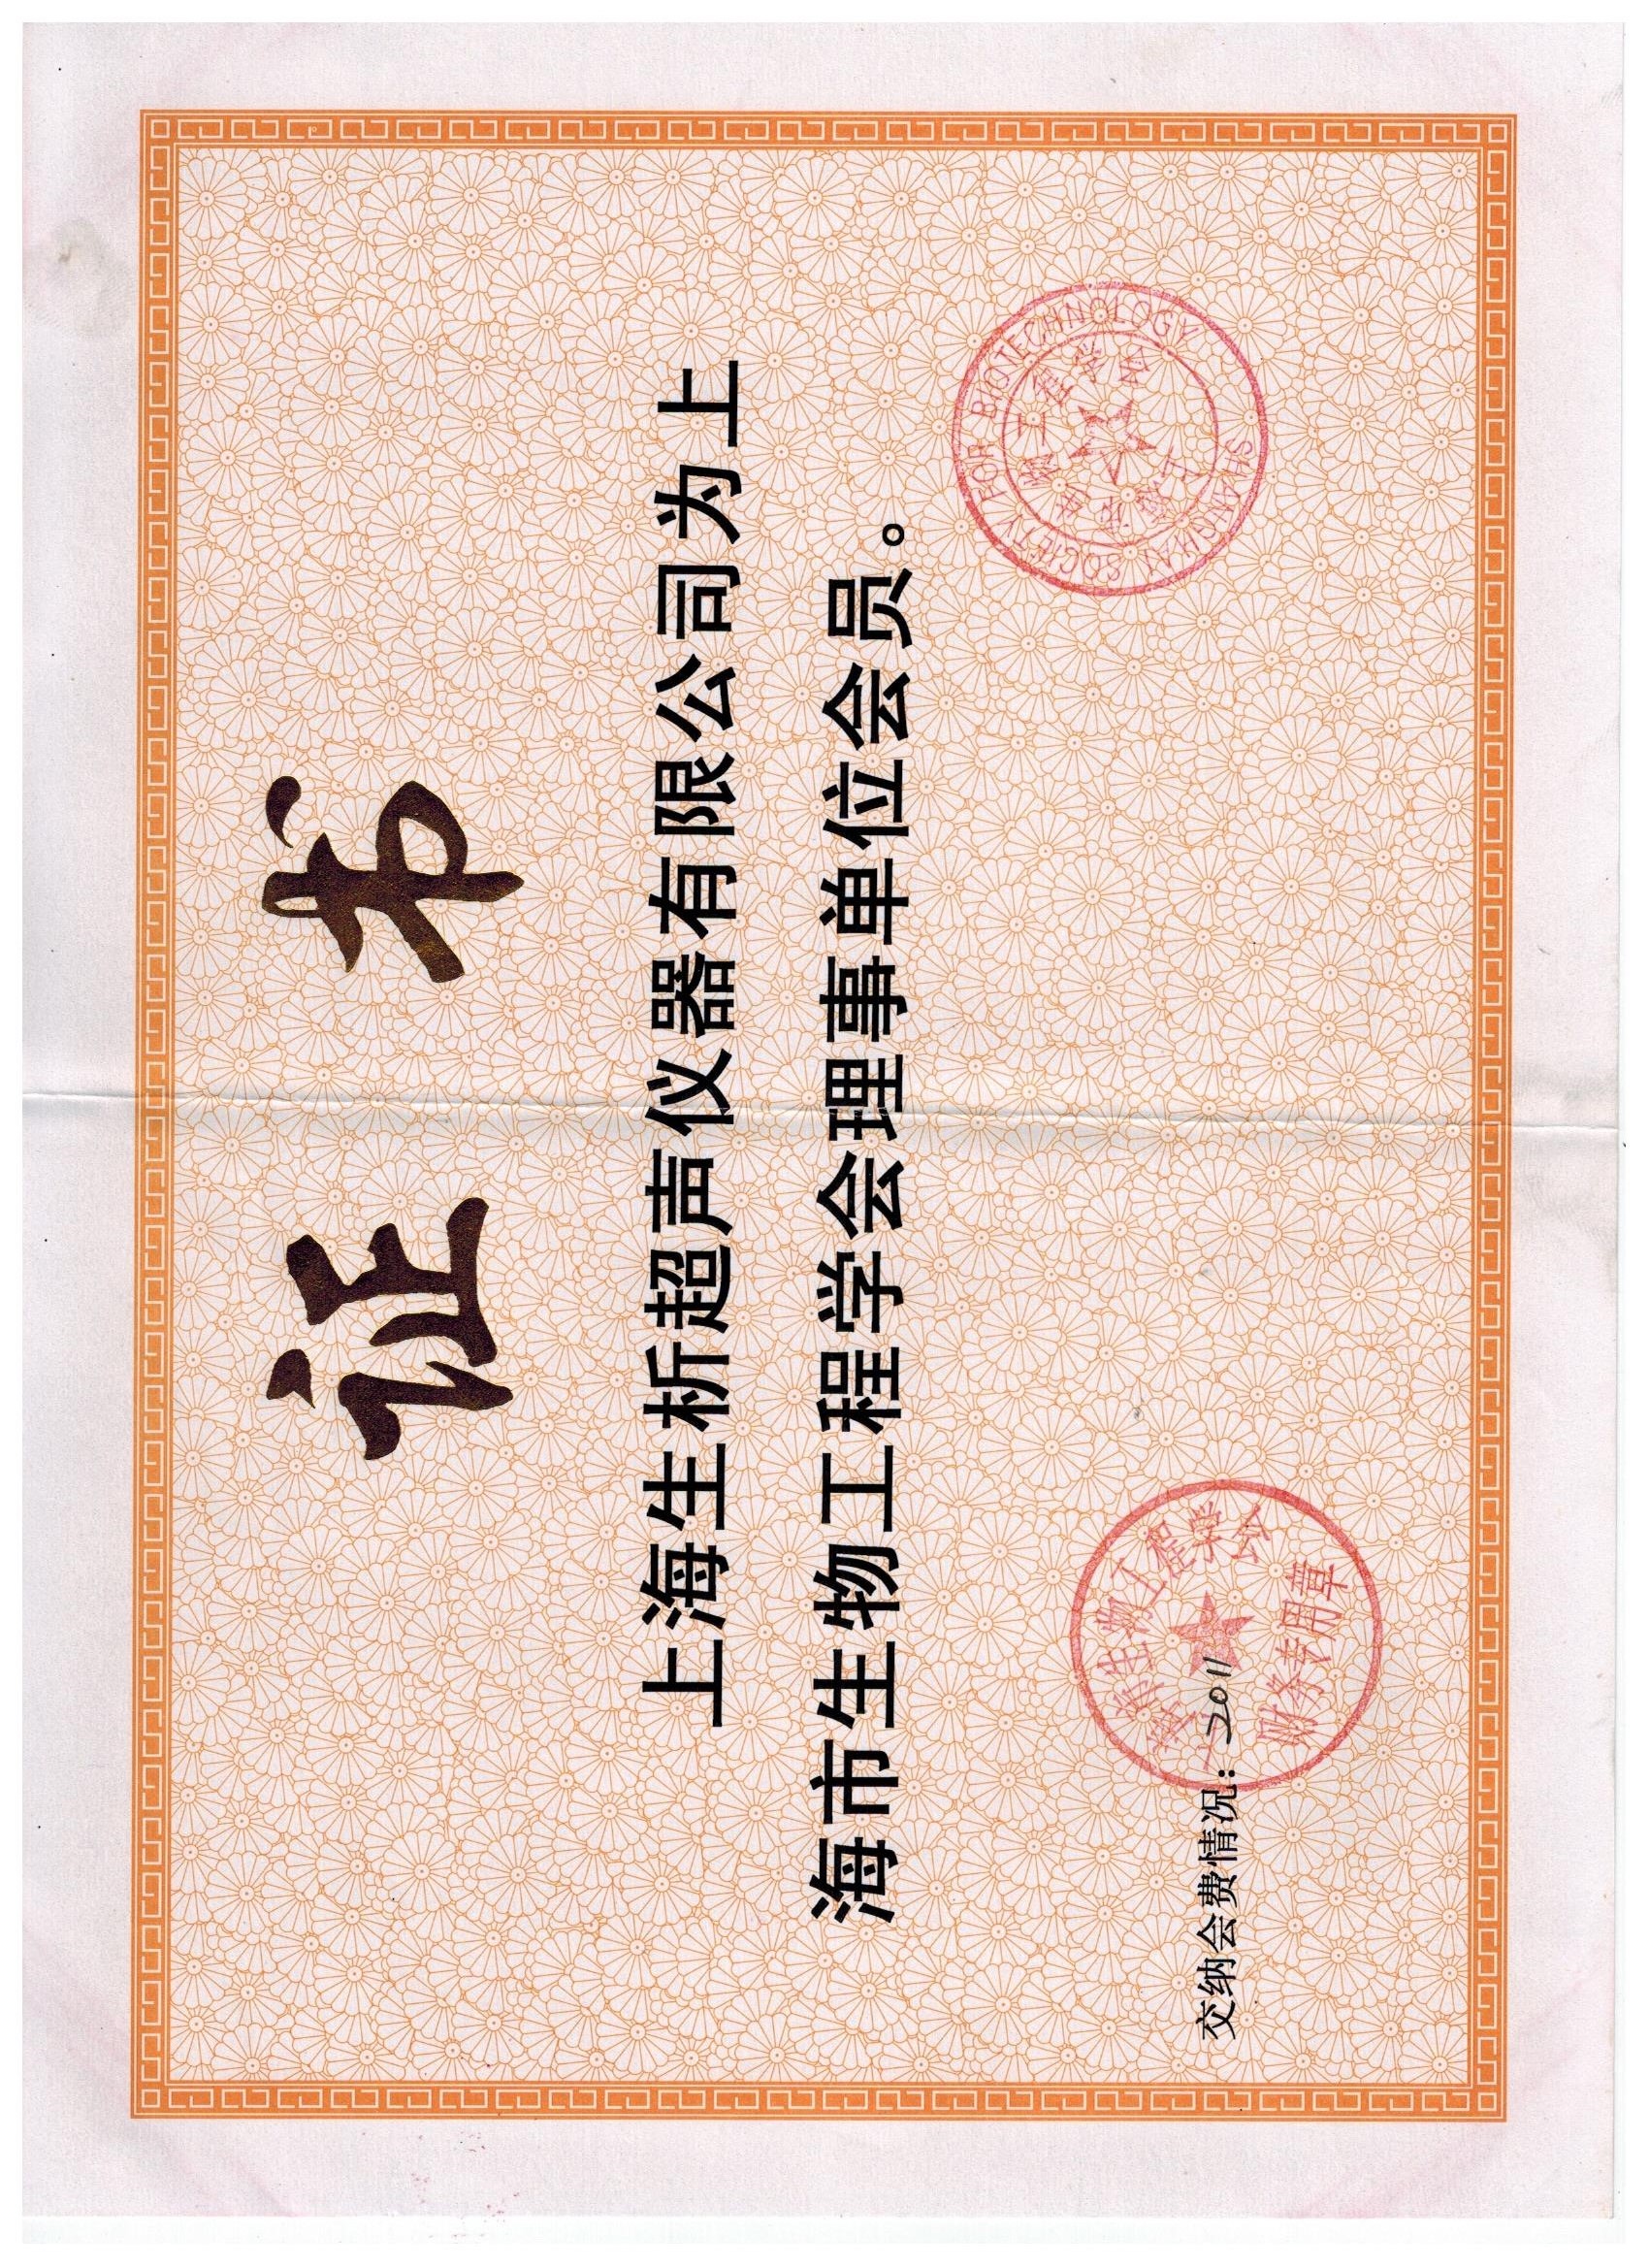 证 书
上海生析超声仪器有限公司为上
海市生物工程学会理事单位会员。
SHANGHAI SOCIETY FOR BIOTECHNOLOGY
上海市生物工程学会
交纳会费情况：2011
上海市生物工程学会
财务专用章